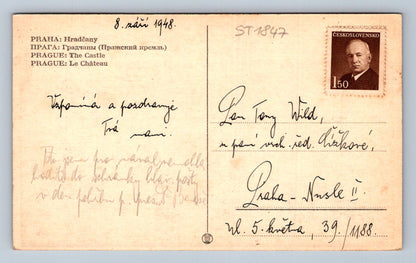 8. září 1948.
ST1847
PRAHA: Hradčany
ПРАГА: Градчаны (Пражский кремль)
PRAGUE: The Castle
PRAGUE: Le Château
ČESKOSLOVENSKO
1.50
Vzpomíná a pozdravuje
Pan Tony Wild,
u paní vrch. řed. Čížkové,
Praha - Nusle II.
ul. 5. května, 39./1188.
do schránky hlav. pošty
v den pohřbu p.